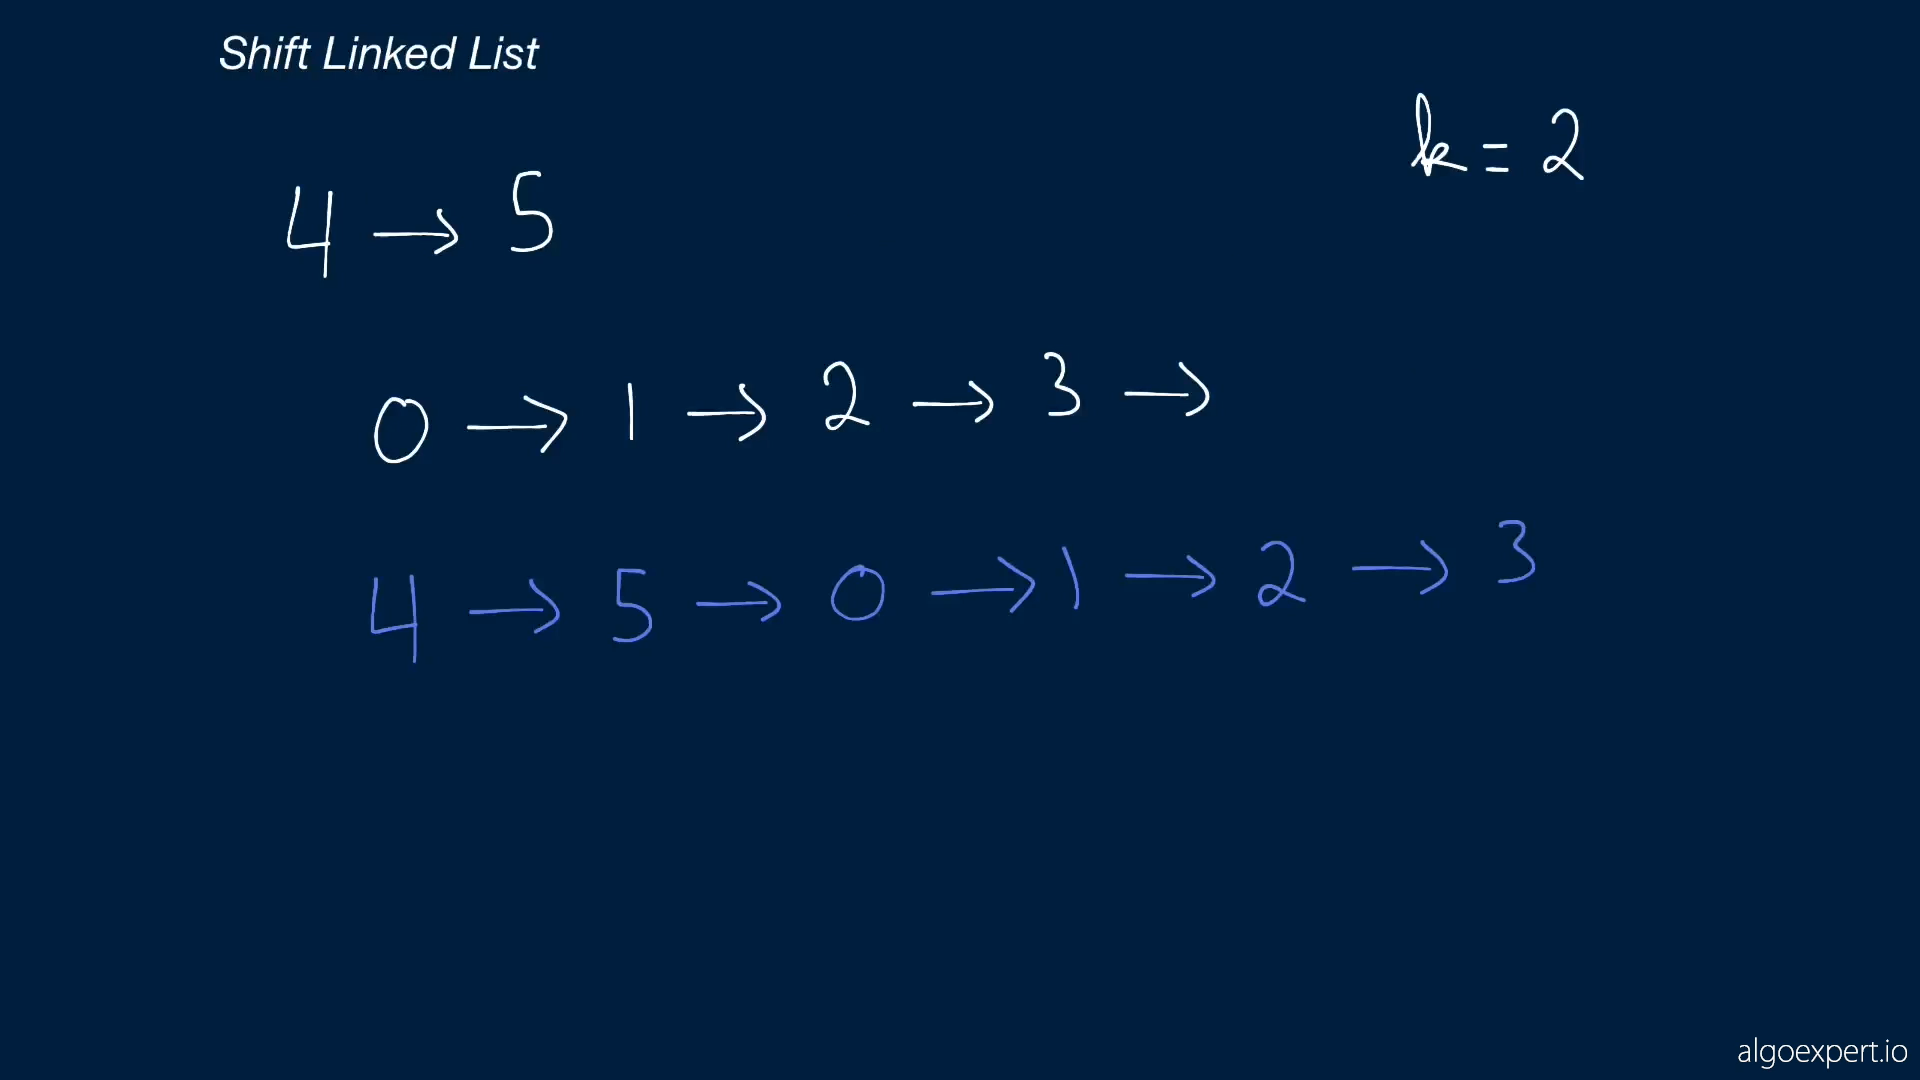 Shift Linked List
k = 2
4 → 5
0 → 1 → 2 → 3 →
4 → 5 → 0 → 1 → 2 → 3
algoexpert.io